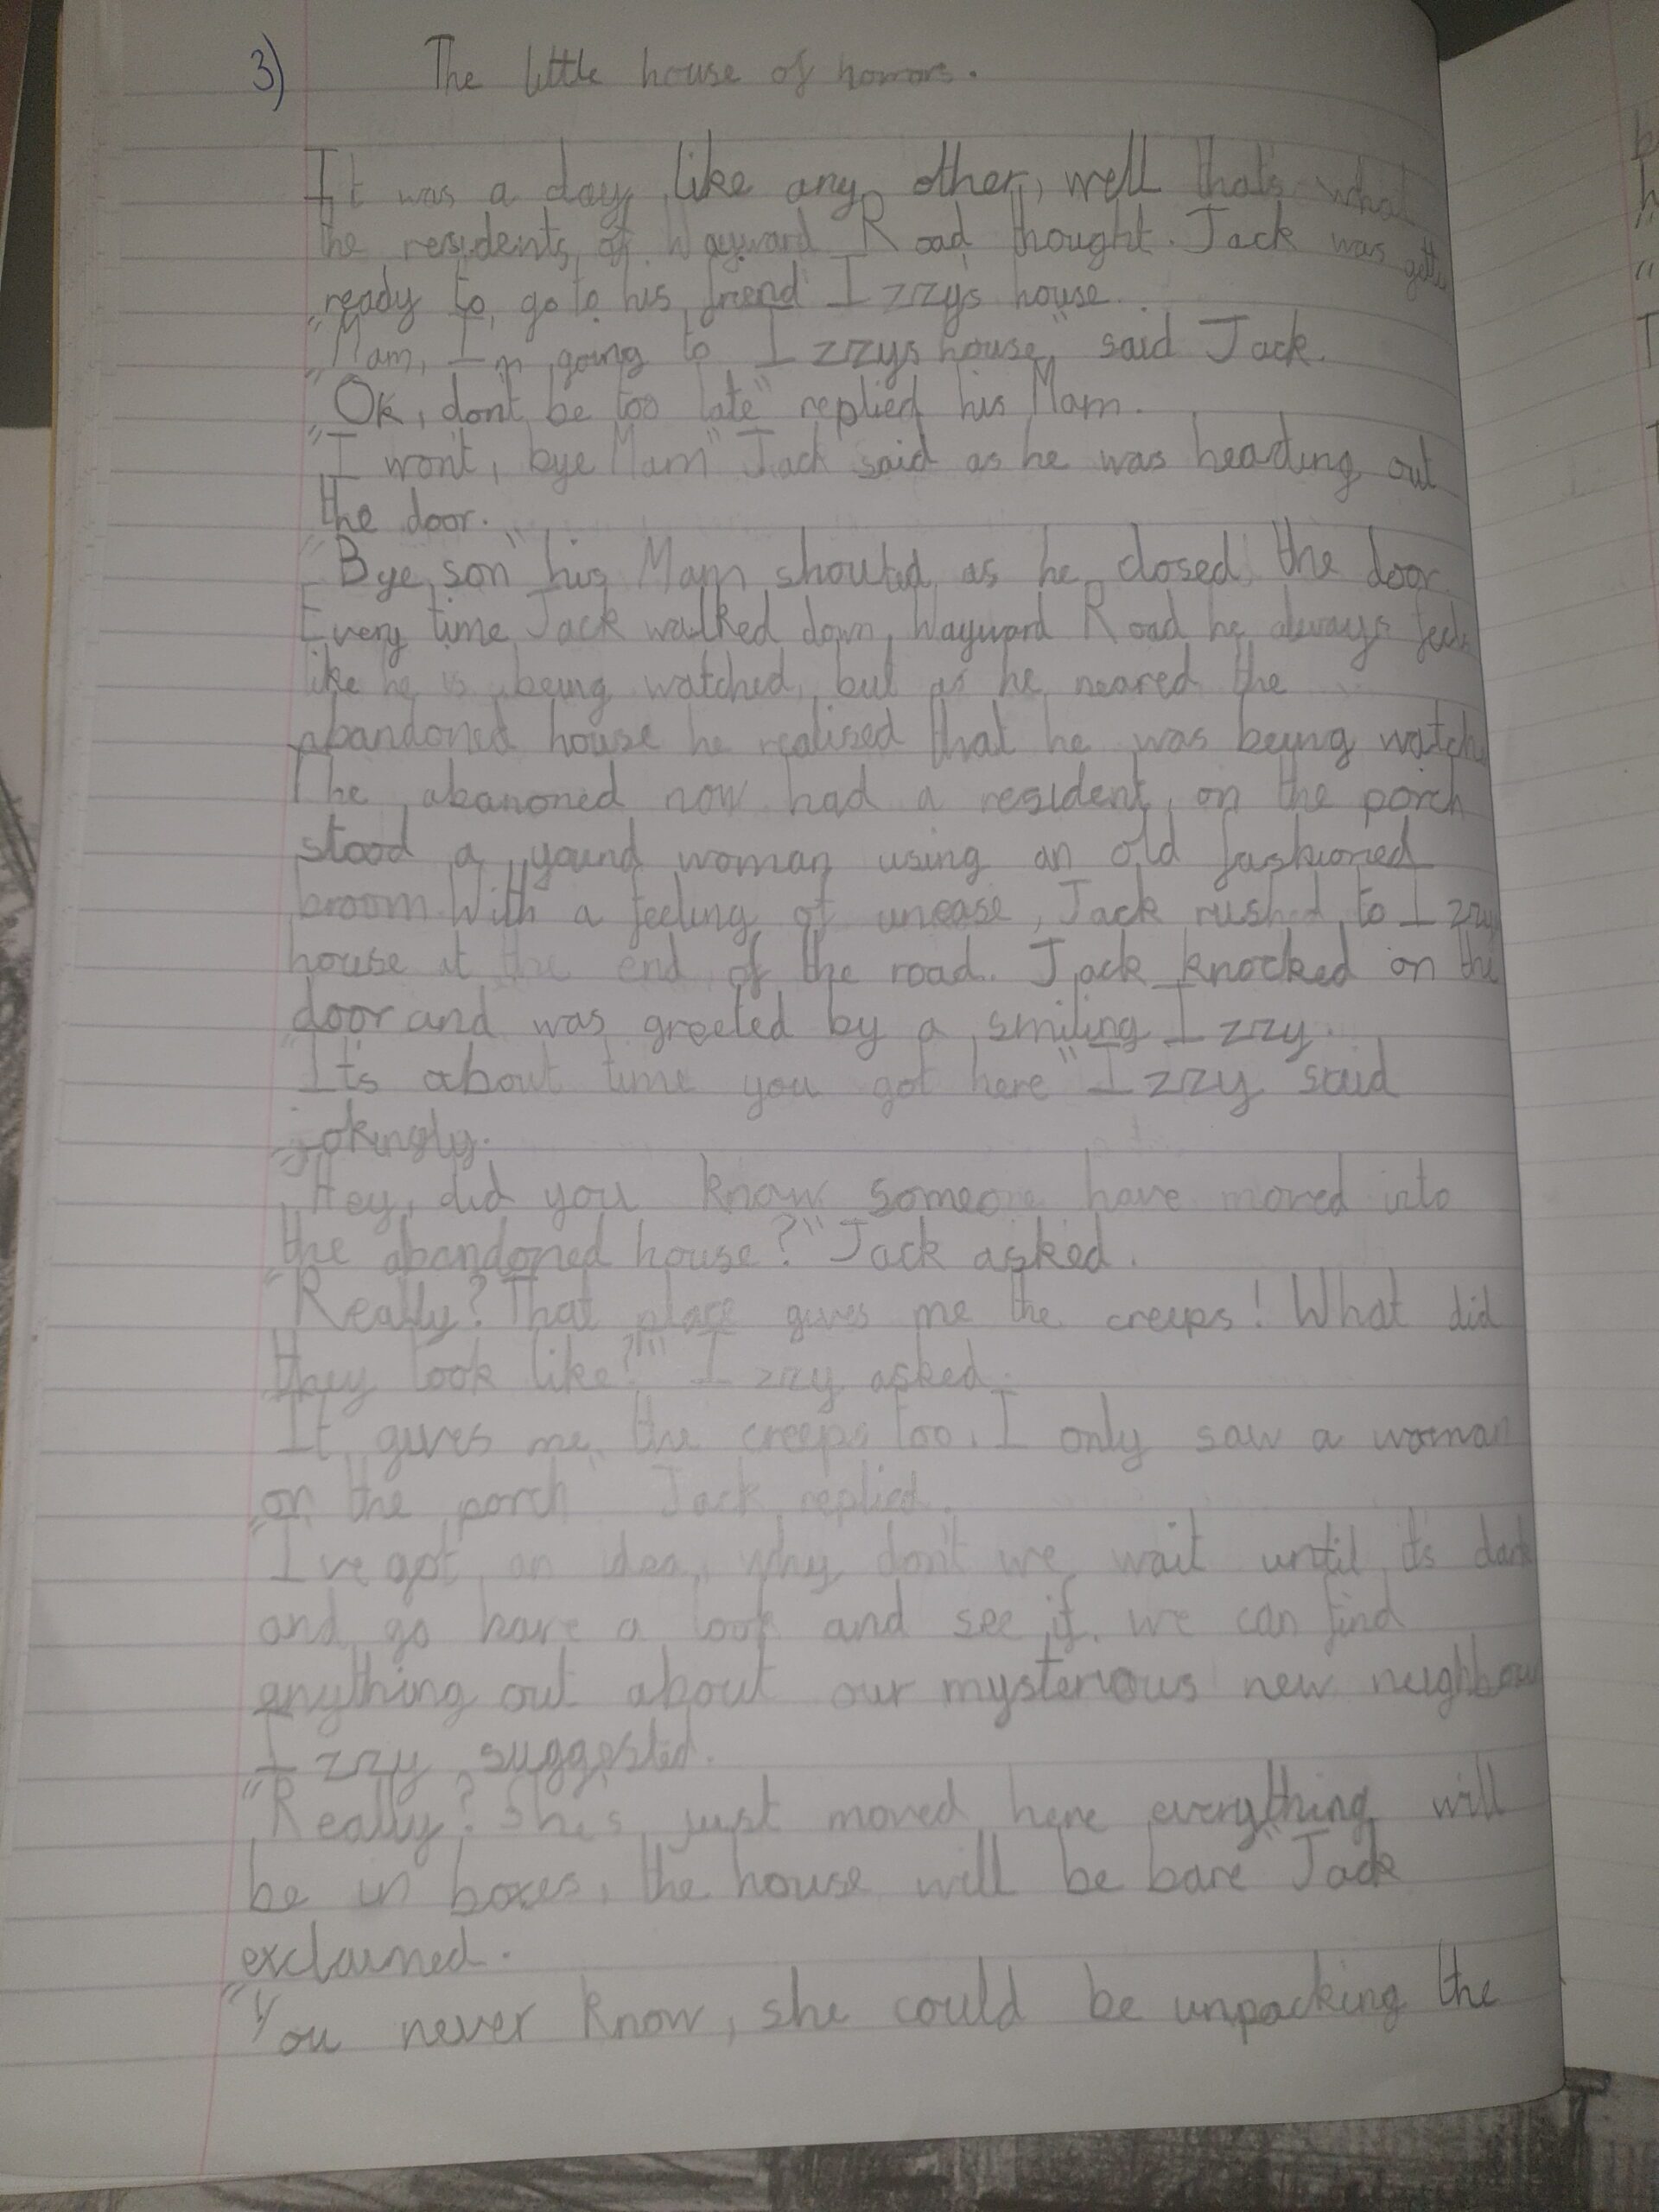 3) The little house of horrors.
It was a day like any other, well that's what
the residents of Wayward Road thought. Jack was
ready to go to his friend Izzys house.
"Mam, Im going to Izzys house," said Jack.
"Ok, don't be too late" replied his Mam.
"I won't, bye Mam" Jack said as he was heading out
the door.
"Bye son" his Mam shouted as he closed the door.
Every time Jack walked down Wayward Road he always feels
like he is being watched, but as he neared the
abandoned house he realised that he was being watch
The abanoned now had a resident, on the porch
stood a yound woman using an old fashioned
broom. With a feeling of unease, Jack rushed to Izzy
house at the end of the road. Jack knocked on the
door and was greeted by a smiling Izzy.
"It's about time you got here" Izzy said
jokingly.
"Hey, did you know someone have moved into
the abandoned house?" Jack asked.
"Really? That place gives me the creeps! What did
they look like?" Izzy asked.
It gives me the creeps too. I only saw a woman
on the porch" Jack replied.
"I've got an idea, why don't we wait until it's dark
and go have a look and see if we can find
anything out about our mysterious new neighbour
Izzy suggested.
"Really? She's just moved here everything will
be in boxes, the house will be bare" Jack
exclaimed.
"You never know, she could be unpacking the